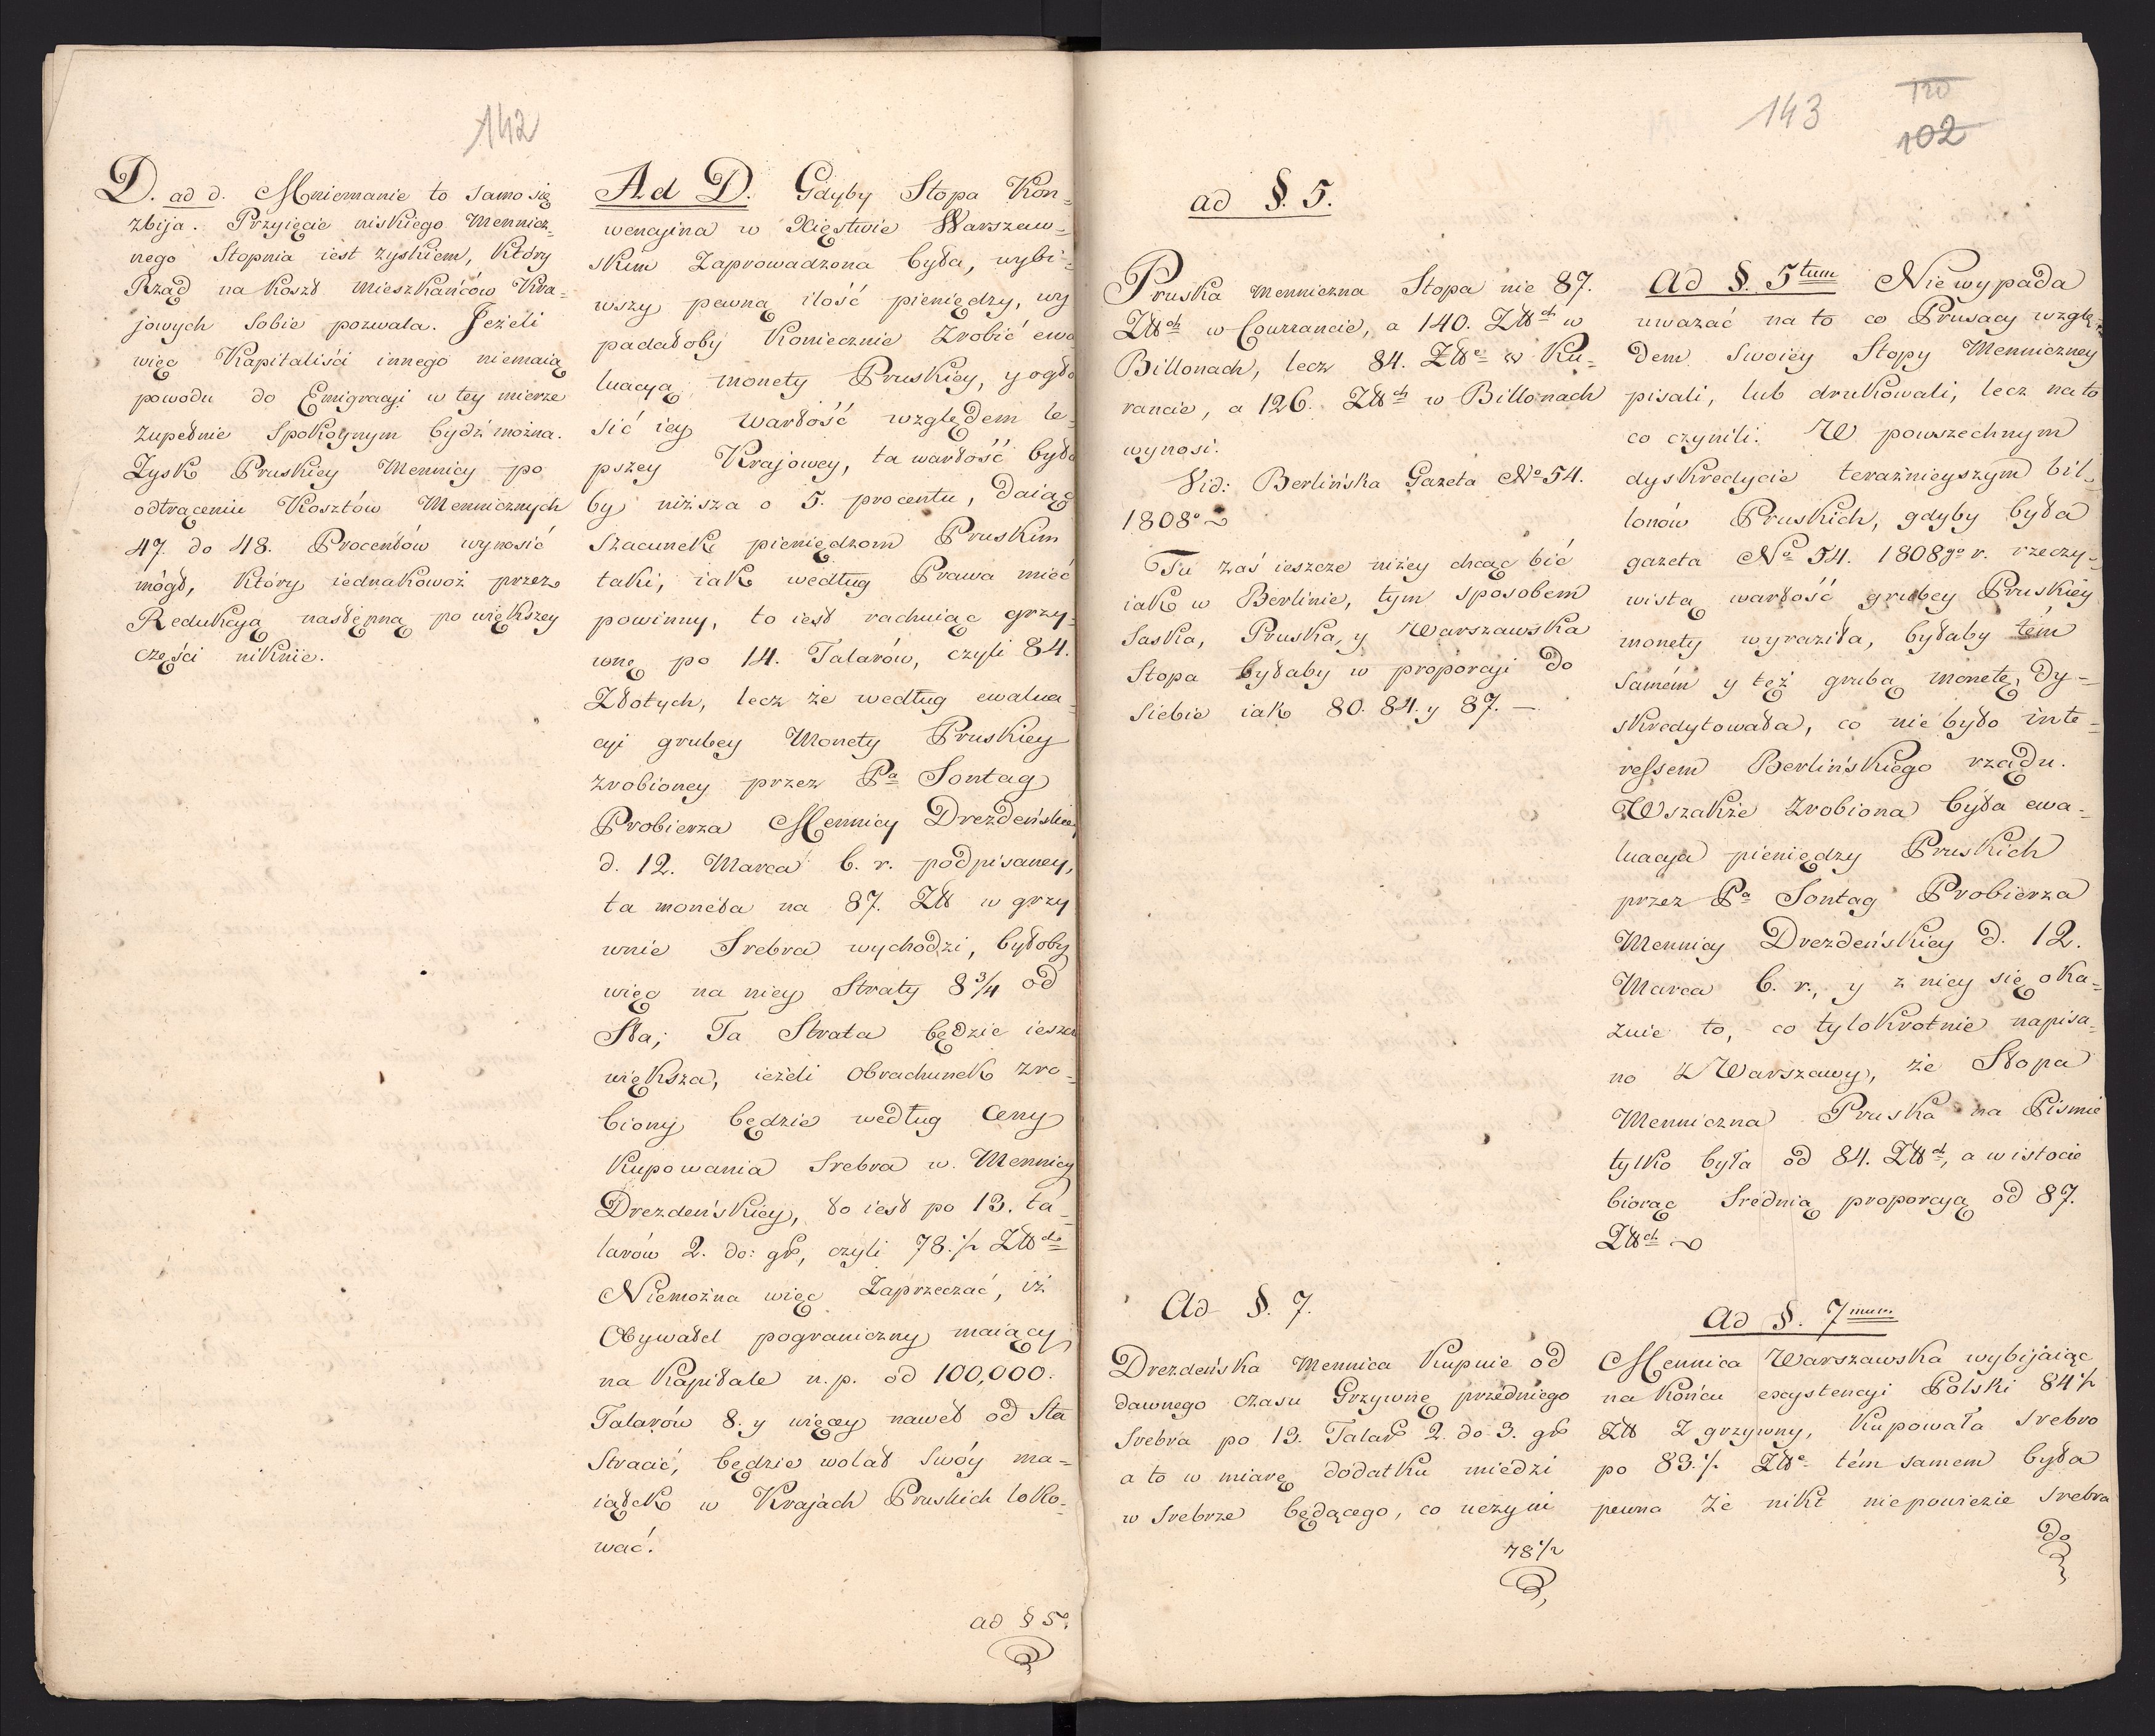 142
D. ad d. Mniemanie to samo się
zbija. Przyięcie niskiego Mennicz-
nego Stopnia iest zyskiem, który
Rząd na koszt Mieszkańców Kra-
jowych sobie pozwala. Jeżeli
więc Kapitaliści innego niemaią
powodu do Emigracyi w tey mierze
zupełnie spokoynym bydź można.
Zysk Pruskiey Mennicy po
odtrąceniu Kosztów Mennicznych
47. do 48. Procentów wynosić
mógł, który iednakowoż przez
Redukcyą nastęnną po większey
części niknie.
Ad D. Gdyby Stopa Kon-
wencyina w Xięstwie Warszaw-
skim Zaprowadzona była, wybi-
wszy pewną ilość pieniędzy, wy
padałoby koniecznie zrobić ewa
luacyą monety Pruskiey, y ogło
sić iey wartość względem le-
pszey Krajowey, ta wartość była
by niższa o 5. procentu, daiąc
szacunek pieniędzom Pruskim
taki, iak według Prawa mieć
powinny, to iest rachuiąc grzy-
wnę po 14. Talarów, czyli 84.
Złotych, lecz że według ewalua-
cyi grubey Monety Pruskiey
zrobioney przez Pa Sontag
Probierza Mennicy Drezdeńskiey
d. 12. Marca b. r. podpisaney,
ta moneta na 87. Zlł w grzy
wnie Srebra wychodzi, byłoby
więc na niey Straty 8 3/4 od
Sta; Ta Strata będzie ieszcze
większa, ieżeli obrachunek zro-
biony będzie według Ceny
kupowania Srebra w Mennicy
Drezdeńskiey, to iest po 13. ta-
larów 2. do: gr, czyli 78. 1/2 Złłch
Niemożna więc Zaprzeczać, iż
Obywatel pograniczny maiący
na Kapitale n. p. od 100,000.
Talarów 8. y więcey nawet od Sta
Stracić, będzie wolał swóy ma-
iątek w Krajach Pruskich loko-
wać.
ad § 5o.
143
120
102
ad §. 5.
Pruska menniczna Stopa nie 87.
Złłch w Courrancie, a 140. Złłch w
Billonach, lecz 84. Złłe w Ku-
rancie, a 126. Złłch w Billonach
wynosi.
Vid: Berlińska Gazeta No 54.
1808o
Tu zaś ieszcze niżey chcąc bić
iak w Berlinie, tym sposobem
Saska, Pruska, y Warszawska
Stopa byłaby w proporcyi do
siebie iak 80. 84. y 87. —
Ad §. 5tum Niewypada
uważać na to co Prusacy wzglę-
dem swoiéy Stopy Menniczney
pisali, lub drukowali, lecz na to
co czynili. W powszechnym
dyskredycie teraźnieyszym bil-
lonów Pruskich, gdyby była
gazeta No 54. 1808go r. rzeczy-
wistą wartość grubey Pruskiey
monety wyraziła, byłaby tém
samém y też grubą monetę dy-
skredytowała, co nie było inte-
ressem Berlińskiego rządu.
Wszakże zrobiona była ewa-
luacya pieniędzy Pruskich
przez Pa Sontag Probierza
Mennicy Drezdeńskiey d. 12.
Marca b. r., y z niey się oka-
zuie to, co tylokrotnie napisa-
no z Warszawy, że Stopa
Menniczna Pruska na Piśmie
tylko była od 84. Złłch, a w istocie
biorąc średnią proporcyą od 87.
Złłch
Ad §. 7.
Drezdeńska Mennica kupuie od
dawnego czasu Grzywnę przedniego
Srebra po 13. Talar 2. do 3. gr
a to w miarę dodatku miedzi
w Srebrze będącego, co uczyni
78 1/2
Ad §. 7mum
Mennica Warszawska wybijaiąc
na końcu exystencyi Polski 84 1/2
Złł z grzywny, kupowała Srebro
po 83. 1/2 Złłe tém samem była
pewna że nikt niepowiezie Srebra
do